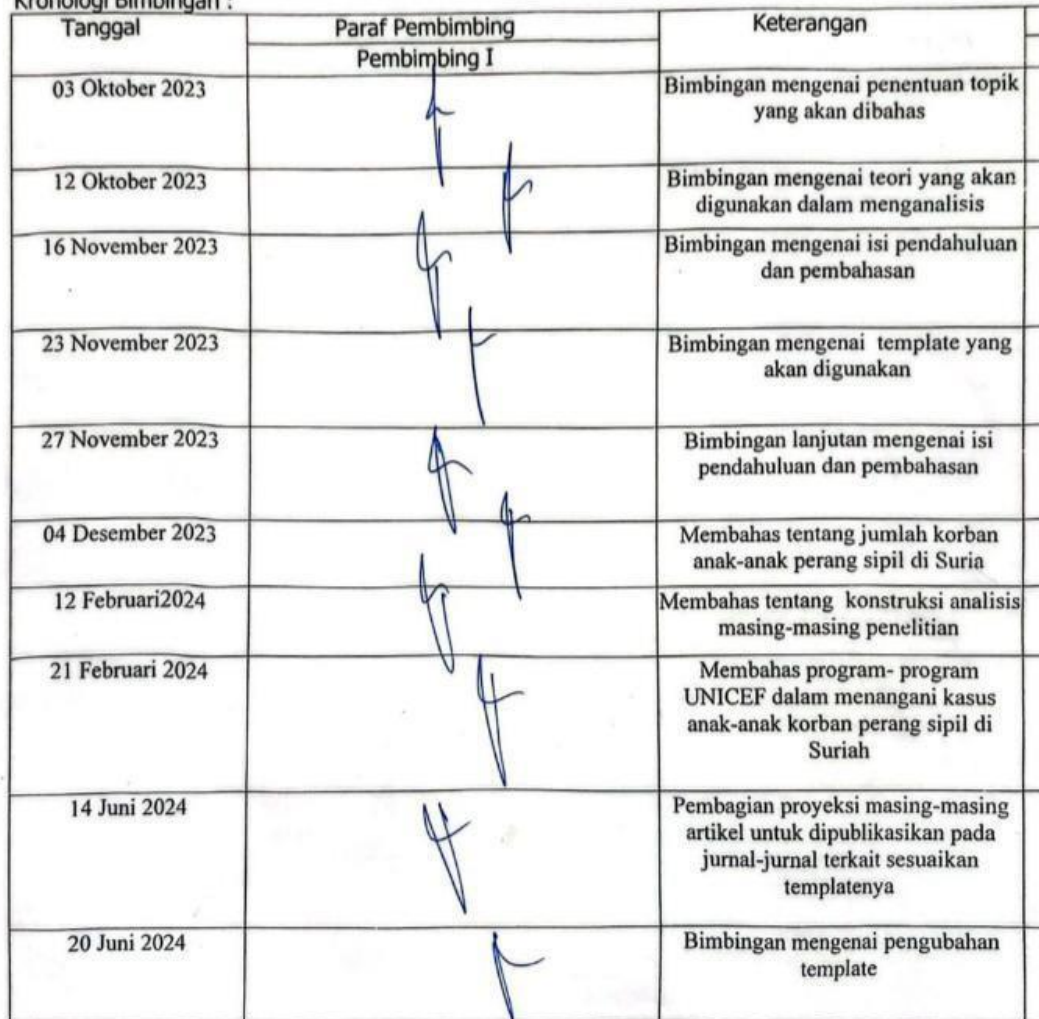 Kronologi Bimbingan :
Tanggal
Paraf Pembimbing
Keterangan
Pembimbing I
03 Oktober 2023
Bimbingan mengenai penentuan topik
yang akan dibahas
12 Oktober 2023
Bimbingan mengenai teori yang akan
digunakan dalam menganalisis
16 November 2023
Bimbingan mengenai isi pendahuluan
dan pembahasan
23 November 2023
Bimbingan mengenai template yang
akan digunakan
27 November 2023
Bimbingan lanjutan mengenai isi
pendahuluan dan pembahasan
04 Desember 2023
Membahas tentang jumlah korban
anak-anak perang sipil di Suria
12 Februari2024
Membahas tentang konstruksi analisis
masing-masing penelitian
21 Februari 2024
Membahas program- program
UNICEF dalam menangani kasus
anak-anak korban perang sipil di
Suriah
14 Juni 2024
Pembagian proyeksi masing-masing
artikel untuk dipublikasikan pada
jurnal-jurnal terkait sesuaikan
templatenya
20 Juni 2024
Bimbingan mengenai pengubahan
template